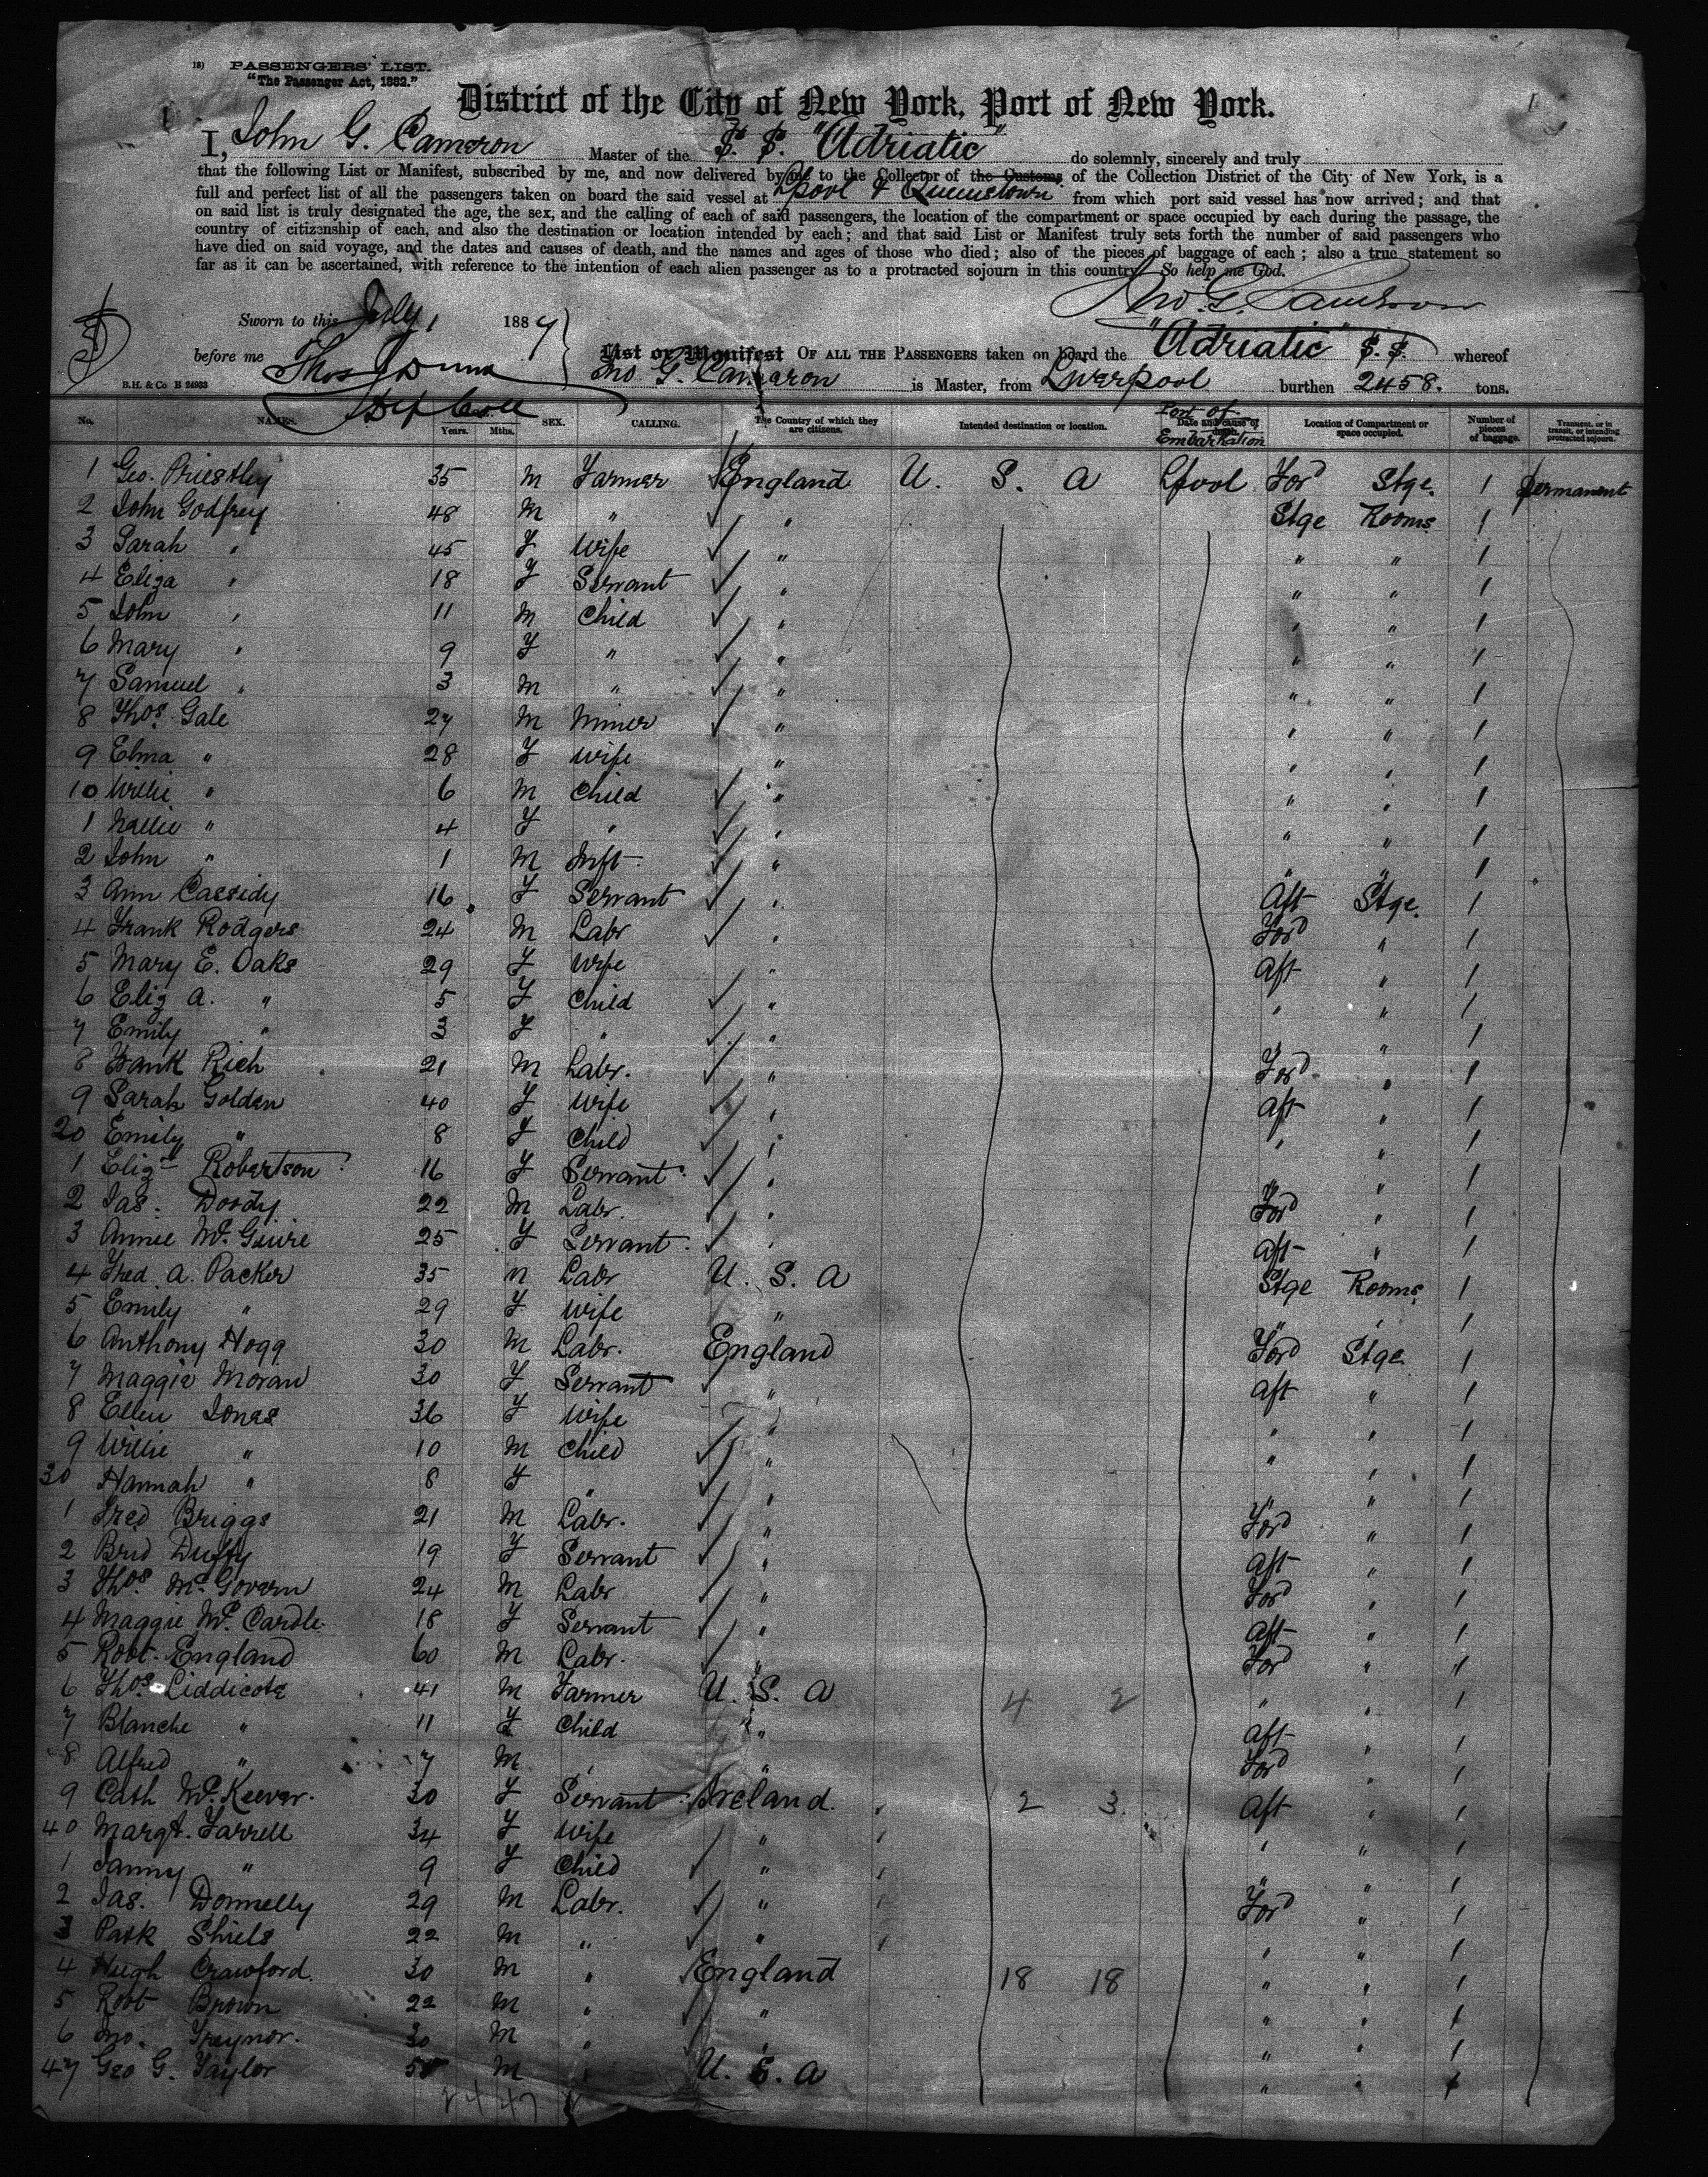 18) PASSENGERS' LIST.
"The Passenger Act, 1882."
District of the City of New York, Port of New York.
I, John G. Cameron Master of the S. S. "Adriatic" do solemnly, sincerely and truly
that the following List or Manifest, subscribed by me, and now delivered by me to the Collector of the Customs of the Collection District of the City of New York, is a
full and perfect list of all the passengers taken on board the said vessel at Lpool & Queenstown from which port said vessel has now arrived; and that
on said list is truly designated the age, the sex, and the calling of each of said passengers, the location of the compartment or space occupied by each during the passage, the
country of citizenship of each, and also the destination or location intended by each; and that said List or Manifest truly sets forth the number of said passengers who
have died on said voyage, and the dates and causes of death, and the names and ages of those who died; also of the pieces of baggage of each; also a true statement so
far as it can be ascertained, with reference to the intention of each alien passenger as to a protracted sojourn in this country. So help me God.
Jno. G. Cameron
Sworn to this July 1 1887
before me Thos J Dunn
List or Manifest OF ALL THE PASSENGERS taken on board the "Adriatic" S. S. whereof
Jno G. Cameron is Master, from Liverpool burthen 2458. tons.
B.H. & Co B 24933
Dep Coll
No. NAMES. Years. Mths. SEX. CALLING. The Country of which they are citizens. Intended destination or location. Port of Embarkation Date and cause of death. Location of Compartment or space occupied. Number of pieces of baggage. Transient, or in transit, or intending protracted sojourn.
1 Geo. Priestley 35 M Farmer England U. S. A Lpool Ford Stge. 1 permanent
2 John Godfrey 48 M " " Stge Rooms 1
3 Sarah " 45 F Wife " " " 1
4 Eliza " 18 F Servant " " " 1
5 John " 11 M Child " " " 1
6 Mary " 9 F " " " " 1
7 Samuel " 3 M " " " " 1
8 Thos. Gale 27 M Miner " " " 1
9 Elma " 28 F Wife " " " 1
10 Willie " 6 M Child " " " 1
1 Nallie " 4 F " " " " 1
2 John " 1 M Inft. " " " 1
3 Ann Cassidy 16 F Servant " Aft Stge. 1
4 Frank Rodgers 24 M Labr " Ford " 1
5 Mary E. Oaks 29 F Wife " Aft " 1
6 Eliz A. " 5 F Child " " " 1
7 Emily " 3 F " " " " 1
8 Frank Rich 21 M Labr. " Ford " 1
9 Sarah Golden 40 F Wife " Aft " 1
20 Emily " 8 F Child " " " 1
1 Elizth Robertson 16 F Servant " " " 1
2 Jas. Doody 22 M Labr. " Ford " 1
3 Annie Mc. Guire 25 F Servant " Aft " 1
4 Fred. A. Packer 35 M Labr U. S. A Stge Rooms 1
5 Emily " 29 F Wife " " " 1
6 Anthony Hogg 30 M Labr. England Ford Stge 1
7 Maggie Moran 30 F Servant " Aft " 1
8 Ellen Jones 36 F Wife " " " 1
9 Willie " 10 M Child " " " 1
30 Hannah " 8 F " " " " 1
1 Fred Briggs 21 M Labr. " Ford " 1
2 Brid Duffy 19 F Servant " Aft " 1
3 Thos. Mc. Govern 24 M Labr " Ford " 1
4 Maggie Mc. Cardle 18 F Servant " Aft " 1
5 Robt. England 60 M Labr. " Ford " 1
6 Thos. Liddicote 41 M Farmer U. S. A 4 2 " " 1
7 Blanche " 11 F Child " Aft " 1
8 Alfred " 7 M " " Ford " 1
9 Cath Mc. Keever. 30 F Servant Ireland. 2 3 Aft " 1
40 Margt. Farrell 34 F Wife " " " 1
1 Fanny " 9 F Child " " " 1
2 Jas. Donnelly 29 M Labr. " Ford " 1
3 Patk Shiels 22 M " " " " 1
4 Hugh Crawford. 30 M " England 18 18 " " 1
5 Robt Brown 22 M " " " " 1
6 Jno. Treynor. 30 M " " " " 1
47 Geo G. Taylor M " U. S. A " " 1
24 47